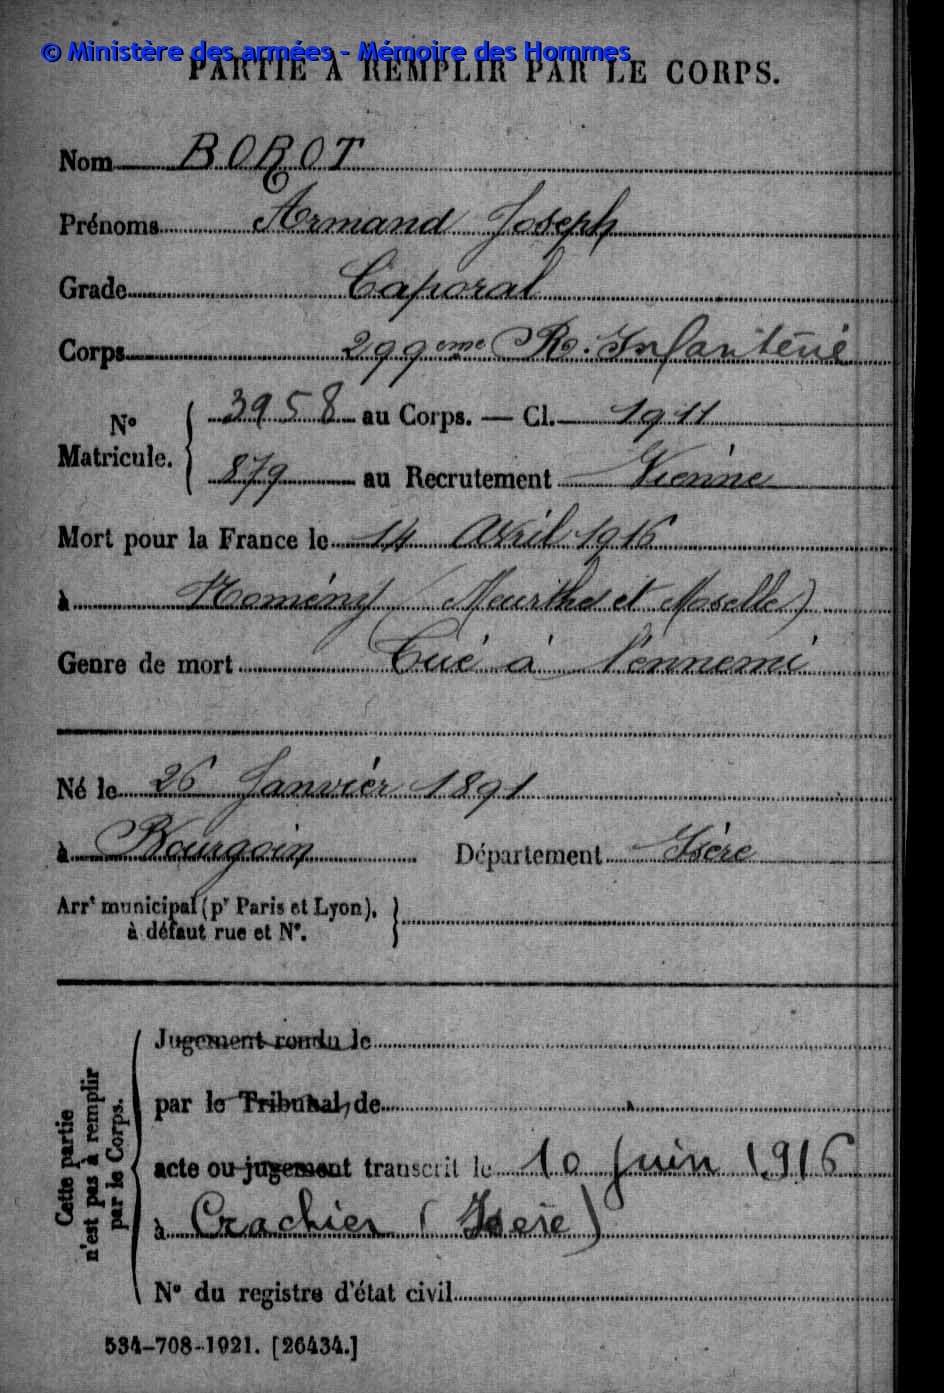 © Ministère des armées - Mémoire des Hommes
PARTIE À REMPLIR PAR LE CORPS.
Nom BOROT
Prénoms Armand Joseph
Grade Caporal
Corps 299eme R. Infanterie
N° Matricule. { 3958 au Corps. — Cl. 1911
879 au Recrutement Vienne
Mort pour la France le 14 Avril 1916
à Nomény (Meurthe et Moselle)
Genre de mort Tué à l'ennemi
Né le 26 Janvier 1891
à Bourgoin Département Isère
Arrt municipal (pr Paris et Lyon),
à défaut rue et N°.
Cette partie n'est pas à remplir par le Corps.
Jugement rendu le
par le Tribunal de
acte ou jugement transcrit le 10 Juin 1916
à Crachier (Isère)
N° du registre d'état civil
534-708-1921. [26434.]